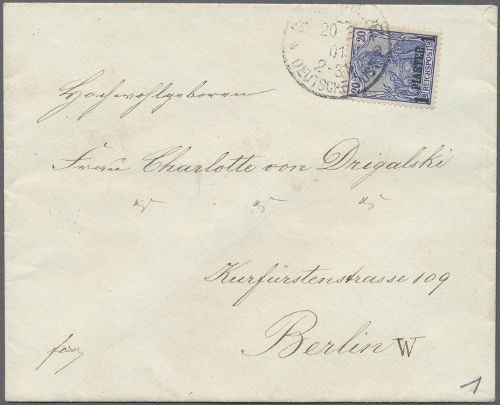 20
01
2-3
DEUTSCHE
20
20
1 PIASTER 1
REICHSPOST
Hochwohlgeboren
Frau Charlotte von Drigalski
Kurfürstenstrasse 109
Berlin W
1